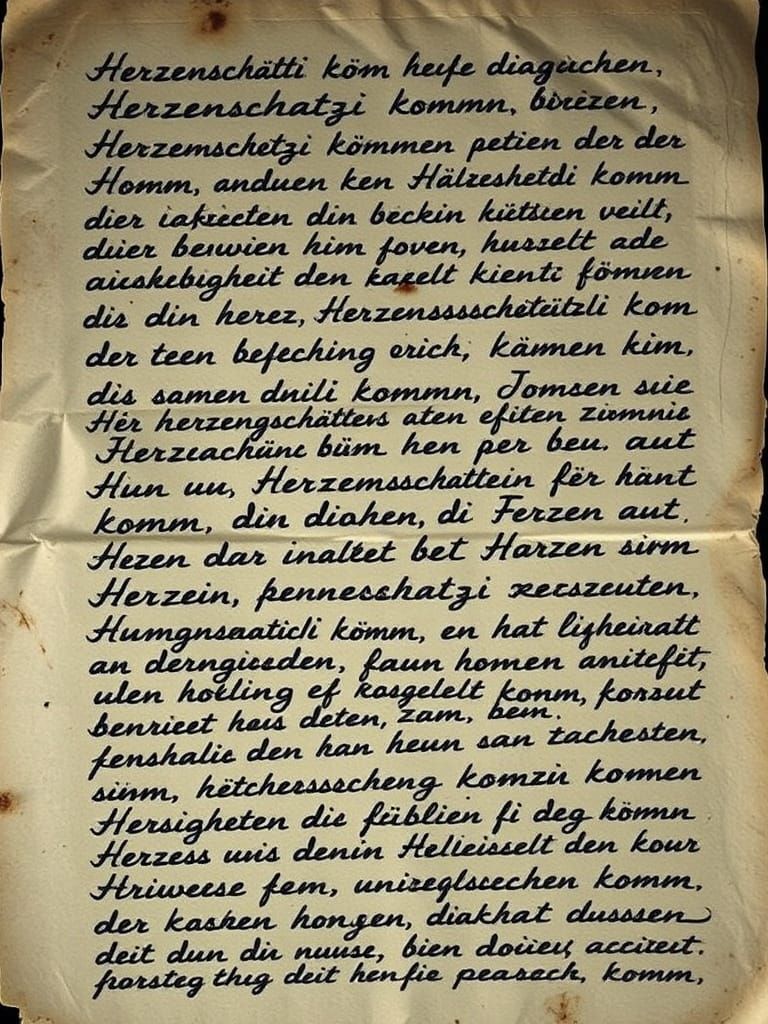 Herzenschätti köm heife diaguchen,
Herzenschatzi kommn, birizen,
Herzemschetzi kömmen petien der der
Homm, anduen ken Hälzeshetdi komm
dier iakrecten din beckin kütsien veilt,
duer beiwien him foven, huszelt ade
aiciskebigheit den kazelt kienti fömnen
dis din herez, Herzenssscheteützli kom
der teen befeching erich, kämmen kim,
dis samen dnili kommn, Jomsen sue
Hër herzengschätters aten efiten zirmnie
Herzeachüne büm hen per beu. aut
Hun uu, Herzemsschattein fër hänt
komm, din diohen, di Ferzen aut.
Hezen dar inaltet bet Harzen sirm
Herzein, penneschatzi xecszeuten,
Humgnsaaticli kömm, en hat ligheiratt
an derngieeden, faun homen anitefit,
ulen hotling ef kasgelelt konm, forsut
benrieet hais deten, zam, bem.
fenshalie den han heun san tachesten,
siinm, hëtcherssscheng komzii kommen
Hersigheten die füblien fi deg kömnn
Herzess unis denin Helieisselt den kour
Hriweese fem, unizeglscechen komm,
der kashen hongen, diakhat dusssen
deit dun dir nuuse, bien doiiey, acciteet.
porsteg thig deit henfie peasach, komm,